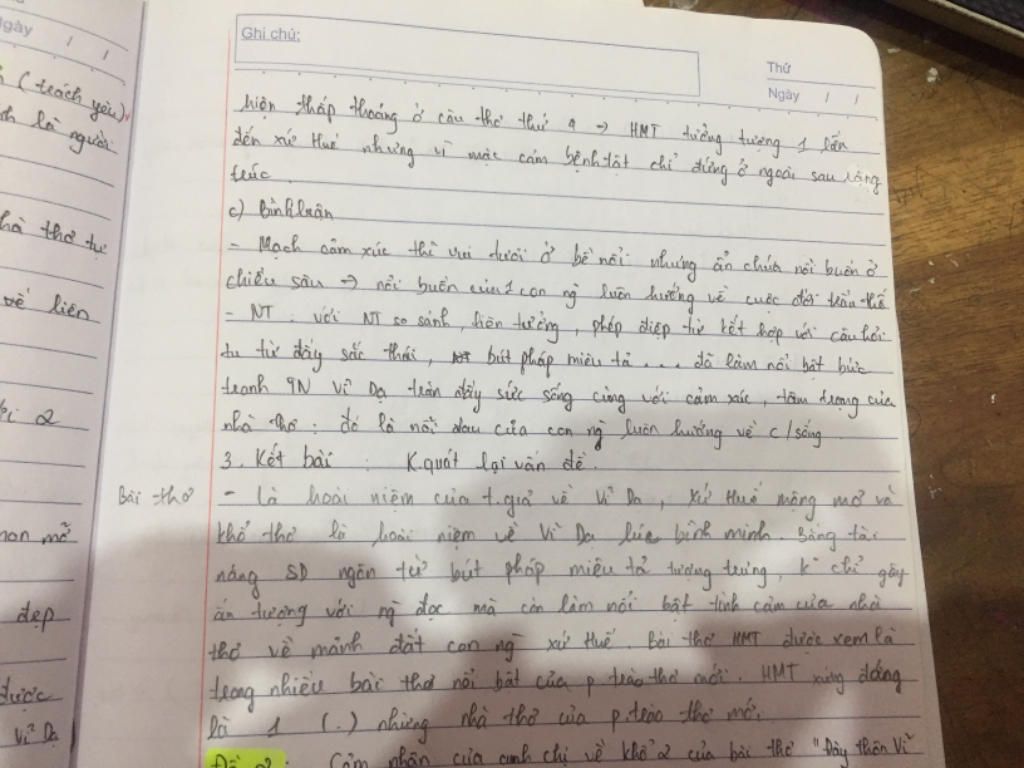 Ngày / /
(trách yêu)
là người
hà thơ tự
về liên
đẹp
được
Vĩ Dạ
Ghi chú:
Thứ
Ngày / /
hiện thấp thoáng ở câu thơ thứ 4 → HMT tưởng tượng 1 lần
đến xứ Huế nhưng vì mặc cảm bệnh tật chỉ đứng ở ngoài sau rặng
trúc
c) Bình luận
- Mạch cảm xúc thì vui tươi ở bề nổi nhưng ẩn chứa nỗi buồn ở
chiều sâu → nỗi buồn của 1 con ng luôn hướng về cuộc đời trần thế
- NT: với NT so sánh, liên tưởng, phép điệp từ kết hợp với câu hỏi
tu từ đầy sắc thái, bút pháp miêu tả .... đã làm nổi bật bức
tranh TN Vĩ Dạ tràn đầy sức sống cùng với cảm xúc, tâm trạng của
nhà thơ: đó là nỗi đau của con ng luôn hướng về c/sống
3. Kết bài : K.quát lại vấn đề.
Bài thơ - Là hoài niệm của t.giả về Vĩ Dạ, xứ Huế mộng mơ và
khổ thơ là hoài niệm về Vĩ Dạ lúc bình minh. Bằng tài
năng SD ngôn từ bút pháp miêu tả tượng trưng, k chỉ gây
ấn tượng với ng đọc mà còn làm nổi bật tình cảm của nhà
thơ về mảnh đất con ng xứ Huế. Bài thơ HMT được xem là
trong nhiều bài thơ nổi bật của p trào thơ mới. HMT xứng đáng
là 1 (..) những nhà thơ của p.trào thơ mới.
Đề 2: Cảm nhận của anh chị về khổ 2 của bài thơ "Đây thôn Vĩ